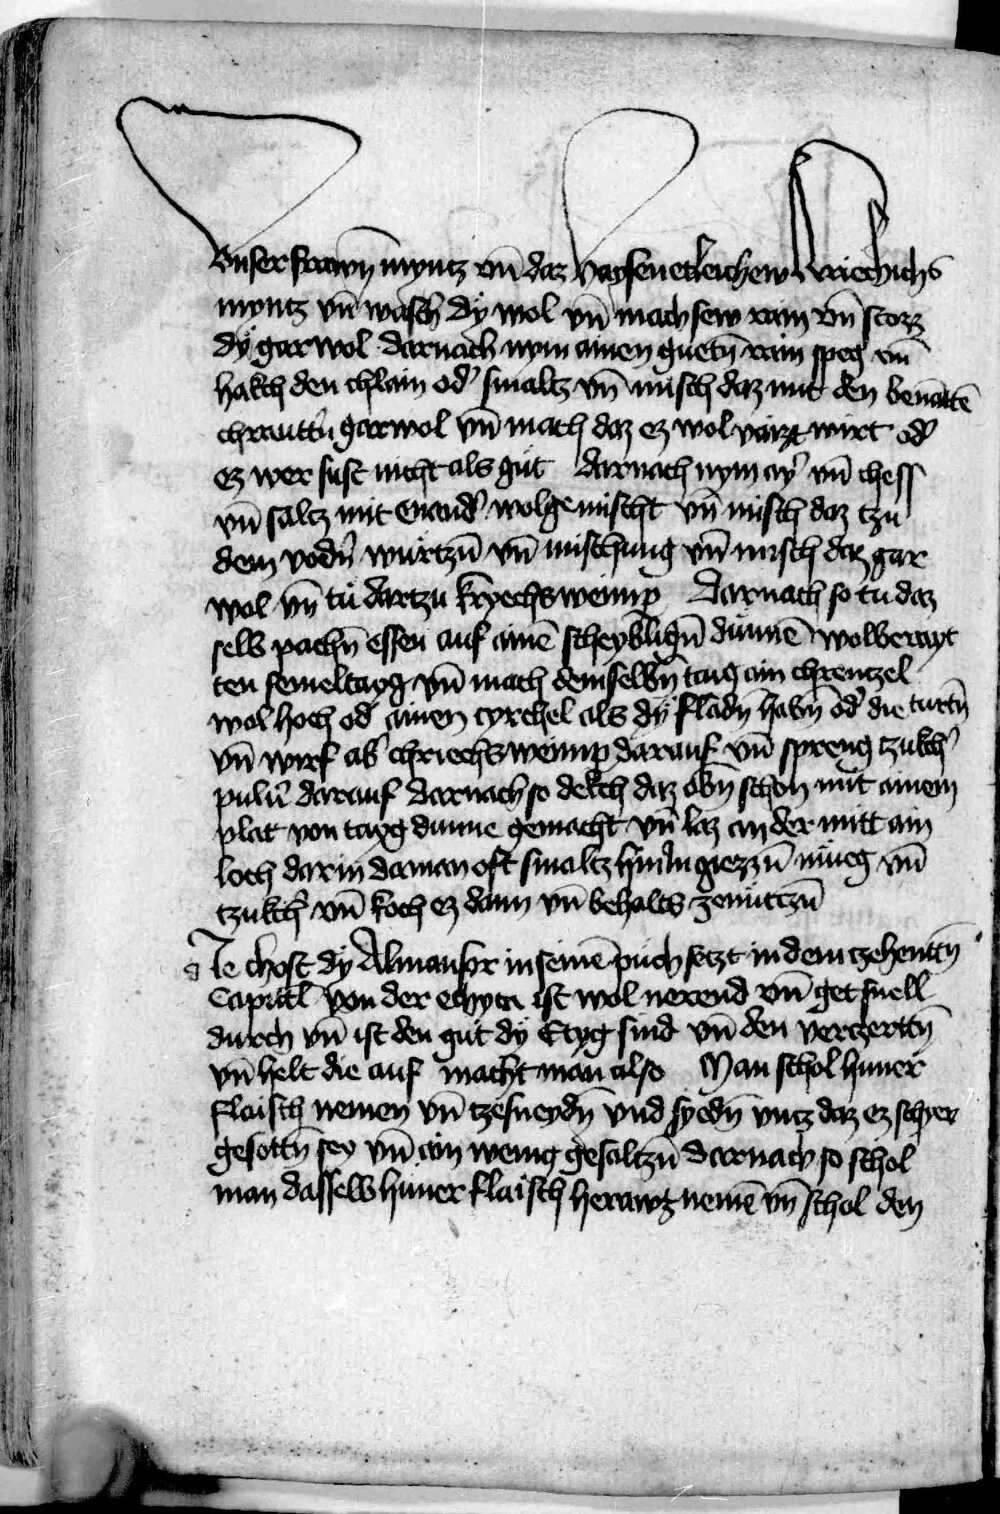 Vnser frawn̄ myntz vn̄ daz haysenetleichew kriechichs
myntz vn̄ wasch̓ dÿ wol vn̄ mach sew rain vn̄ stozz
dÿ gar wol darnach nym ainen guetn̄ rain speg vn̄
hakch den chlain od̓ smaltz vn̄ misch daz mit den benāttē
chrauttn̓ gar wol vn̄ mach daz ez wol vaizt wirt od̓
ez wer sust nicht als gůt darnach nym ay̓ vn̄ chess
vn̄ saltz mit enand̓ wolgemischt vn̄ misch daz tzu
dem vodn̓ würtzn̄ vn̄ mischung vn̄ misch daz gar
wol vn̄ tů dartzu kryechs weinnp Darnach so tu daz
selb pachn̄ essen auf ainē scheyblign̄ dünnē wolberayt
ten semeltayg vn̄ mach demselbn̄ taig ain chrentzel
wol hoch od̓ ainen cyrchel als dÿ fladn̄ habn̄ od̓ die turtn̄
vn̄ wirf ab̓ chriechs weinnp darauf vn̄ spreng tzukch̓
pulu̓ darauf Darnach so dekch daz obn̄ schon mit ainem
plat von tayg dünne gemacht vn̄ laz an der mitt ain
loch darin daman oft smaltz hin in giezzn̄ müeg vn̄
tzukch̓ vn̄ koch ez dann vn̄ behalts zenüctzn̄
d Ie chost dÿ Almansor in seinē püch setzt in dem tzehenttn̄
Capittl̄ von der ethyca ist wol nerend vn̄ get snell
durch vn̄ ist den gůt dÿ Etyg sind vn̄ den verczerttn̄
vn̄ helt die auf macht man also Man schol hüner
flaisch nemen vn̄ tzesneydn̄ vnd syedn̄ vntz daz ez schyer
gesottn̄ sey vn̄ ain wenig gesaltzn̄ darnach so schol
man dasselb hüner flaisch herawz nemē vn̄ schol den